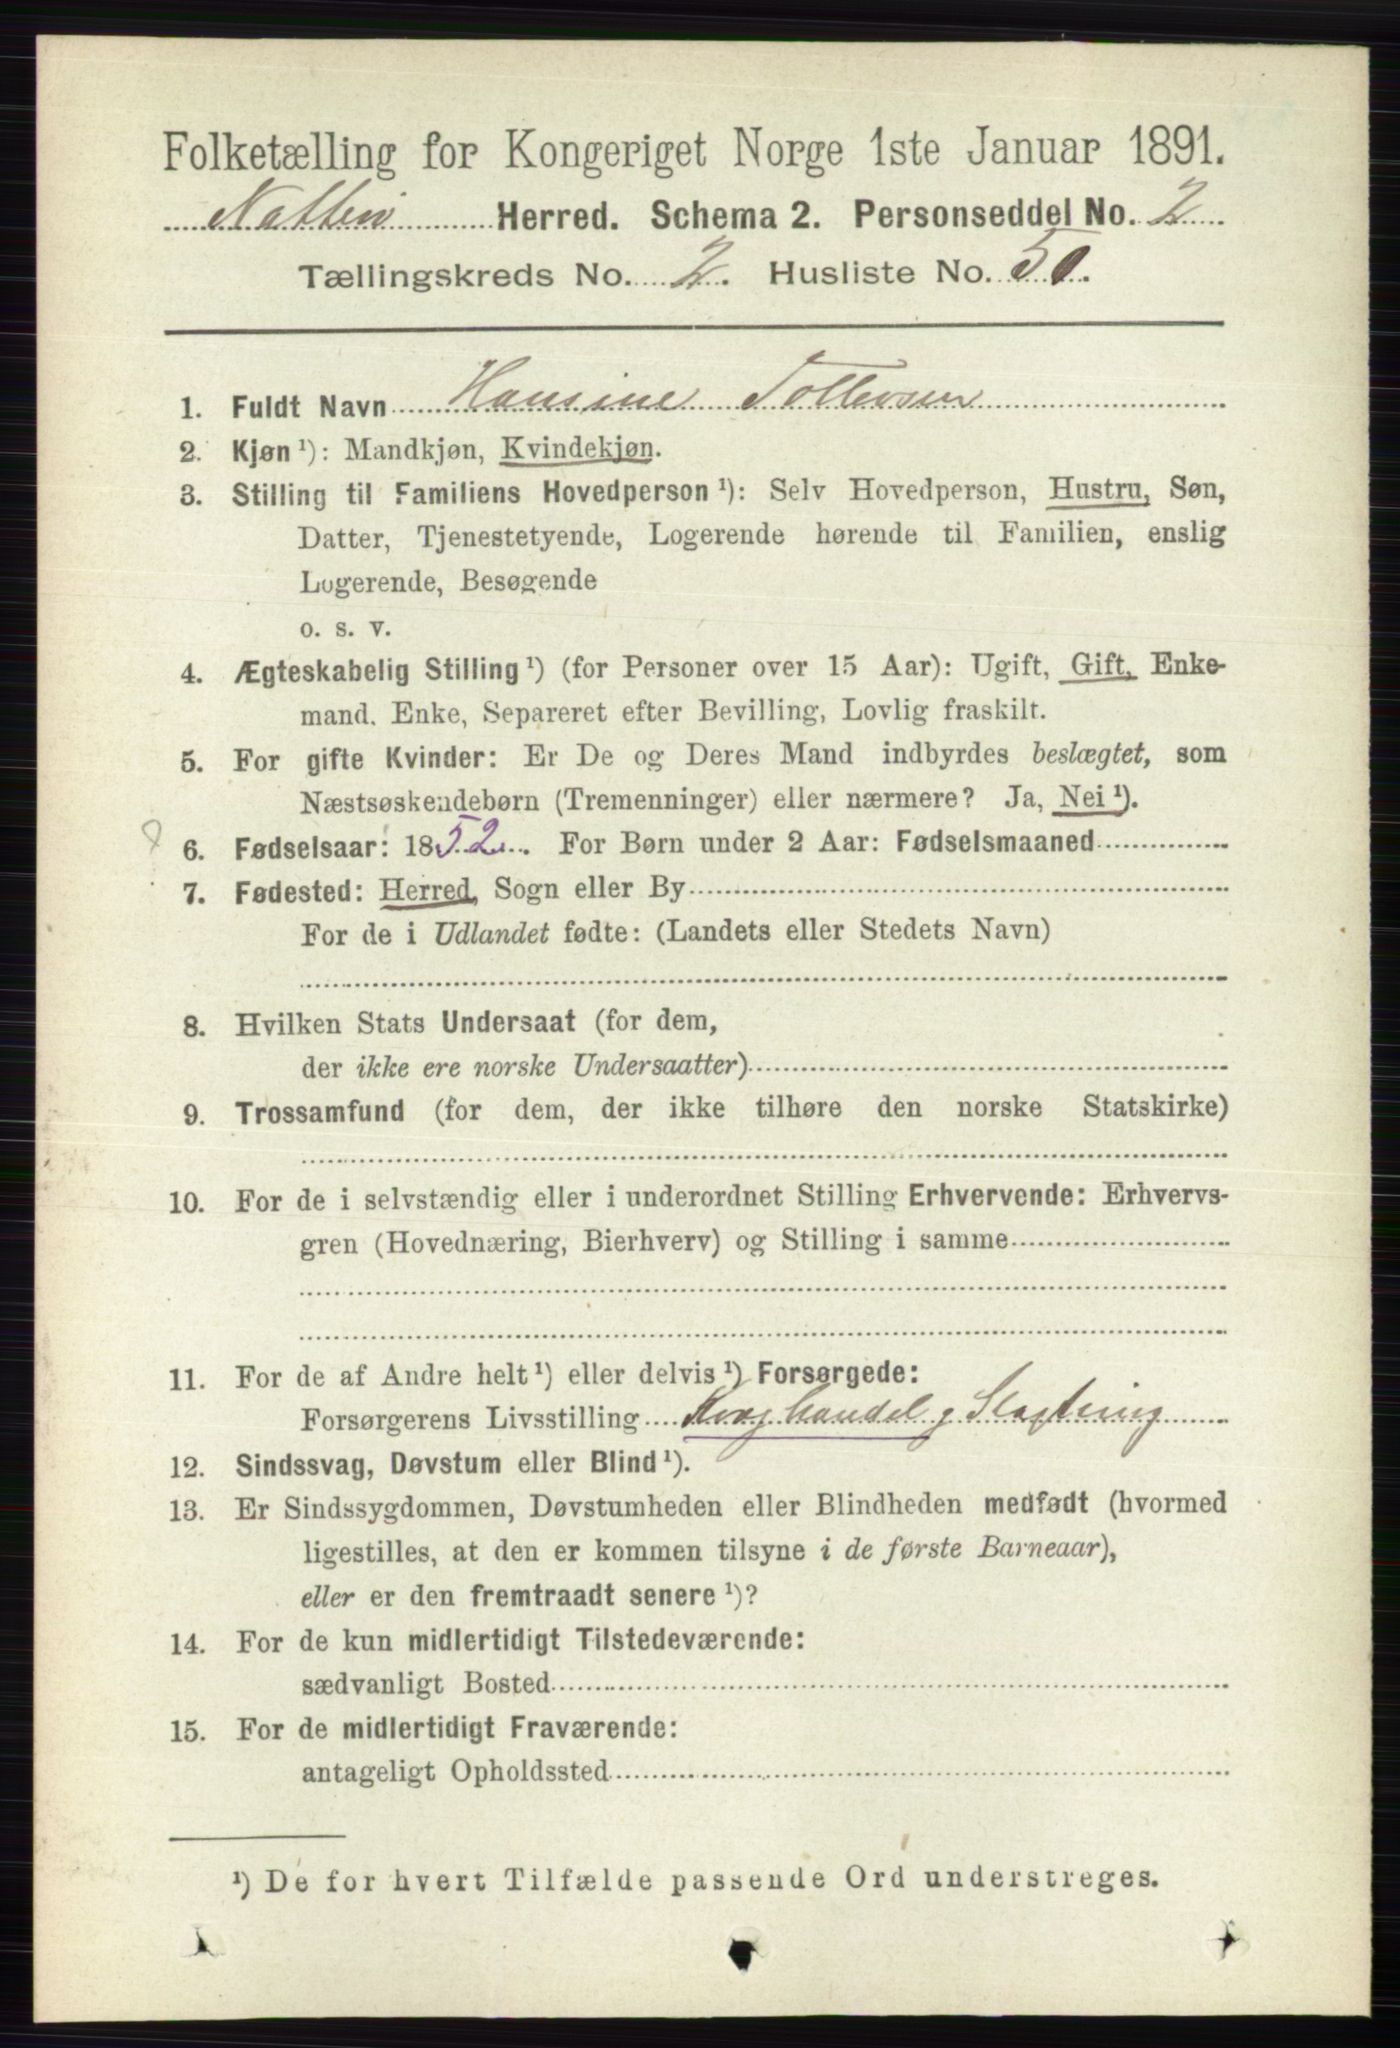 Folketælling for Kongeriget Norge 1ste Januar 1891.
Herred. Schema 2. Personseddel No. 2
Tællingskreds No. 2. Husliste No. 50.
1. Fuldt Navn Hansine Tollevsen
2. Kjøn ¹): Mandkjøn, Kvindekjøn.
3. Stilling til Familiens Hovedperson ¹): Selv Hovedperson, Hustru, Søn,
Datter, Tjenestetyende, Logerende hørende til Familien, enslig
Logerende, Besøgende
o. s. v.
4. Ægteskabelig Stilling ¹) (for Personer over 15 Aar): Ugift, Gift, Enke-
mand, Enke, Separeret efter Bevilling, Lovlig fraskilt.
5. For gifte Kvinder: Er De og Deres Mand indbyrdes beslægtet, som
Næstsøskendebørn (Tremenninger) eller nærmere? Ja, Nei ¹).
6. Fødselsaar: 1852. For Børn under 2 Aar: Fødselsmaaned
7. Fødested: Herred, Sogn eller By
For de i Udlandet fødte: (Landets eller Stedets Navn)
8. Hvilken Stats Undersaat (for dem,
der ikke ere norske Undersaatter)
9. Trossamfund (for dem, der ikke tilhøre den norske Statskirke)
10. For de i selvstændig eller i underordnet Stilling Erhvervende: Erhvervs-
gren (Hovednæring, Bierhverv) og Stilling i samme
11. For de af Andre helt ¹) eller delvis ¹) Forsørgede:
Forsørgerens Livsstilling Kvæghandel g Slagtning
12. Sindssvag, Døvstum eller Blind ¹).
13. Er Sindssygdommen, Døvstumheden eller Blindheden medfødt (hvormed
ligestilles, at den er kommen tilsyne i de første Barneaar),
eller er den fremtraadt senere ¹)?
14. For de kun midlertidigt Tilstedeværende:
sædvanligt Bosted
15. For de midlertidigt Fraværende:
antageligt Opholdssted
¹) De for hvert Tilfælde passende Ord understreges.